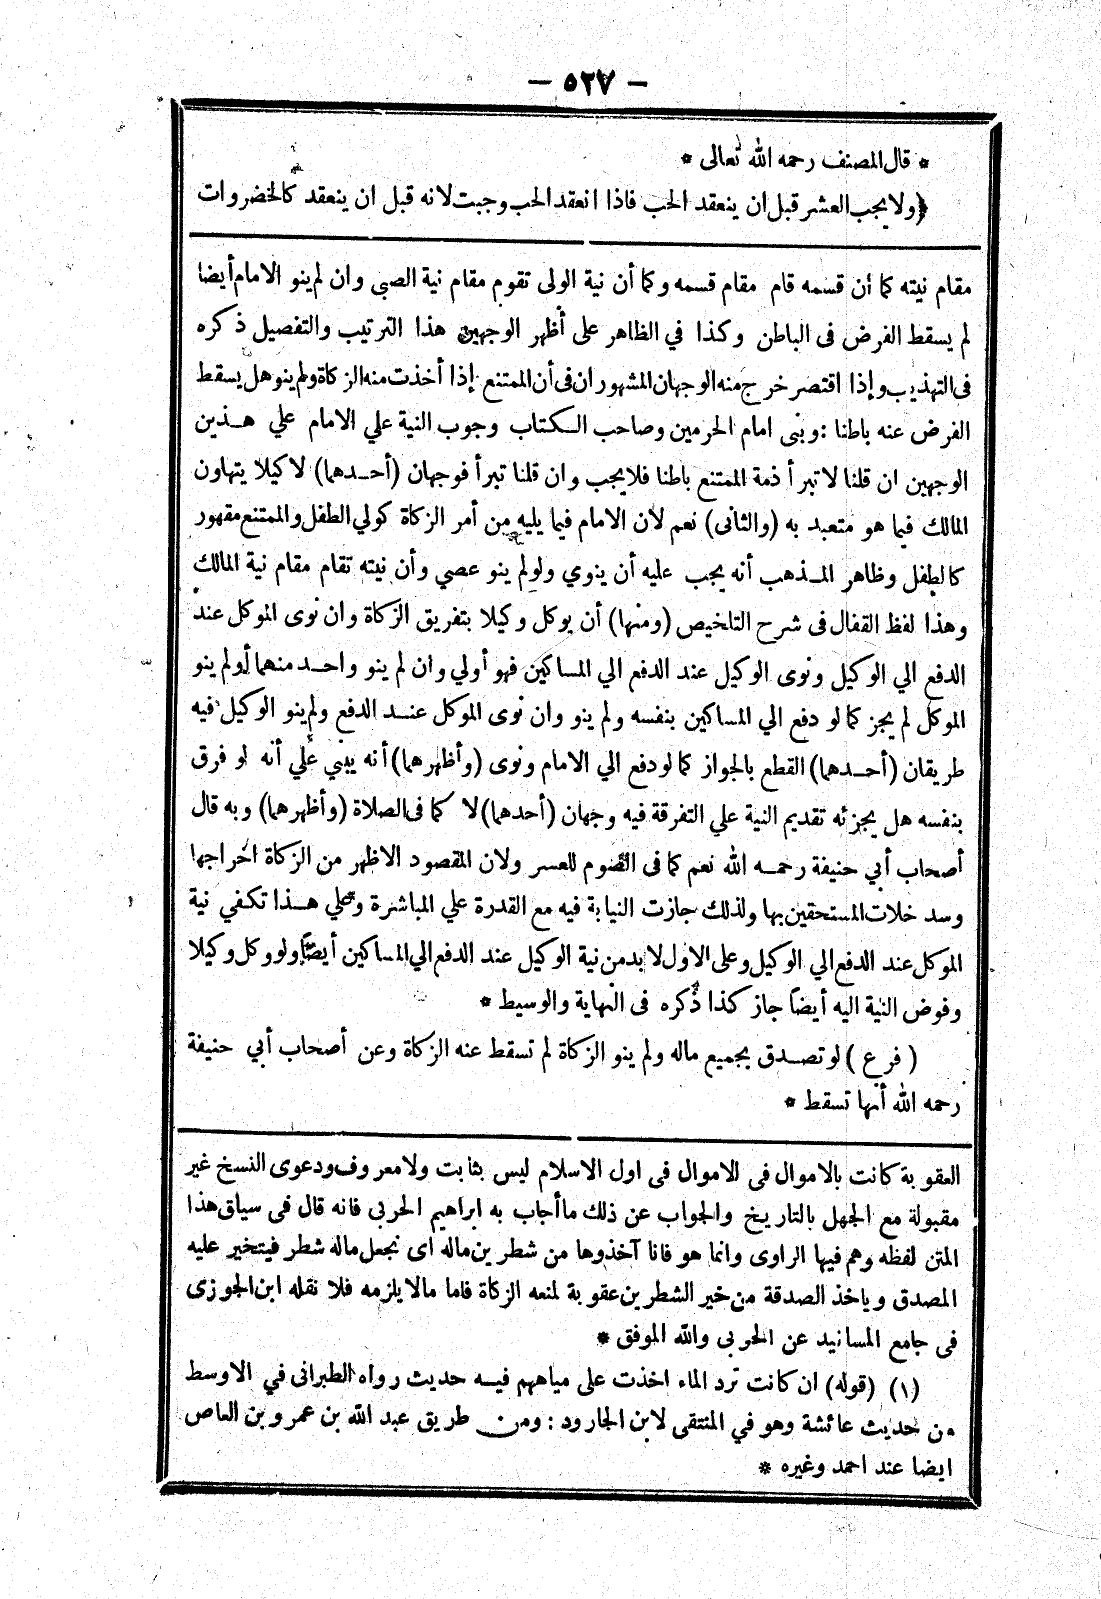 — ٥٢٧ —
* قال المصنف رحمه الله تعالى *
﴿ولا يجب العشر قبل ان ينعقد الحب فاذا انعقد الحب وجبت لانه قبل ان ينعقد كالخضروات
مقام نيته كما أن قسمه قام مقام قسمه وكما أن نية الولى تقوم مقام نية الصبى وان لم ينو الامام أيضا
لم يسقط الفرض فى الباطن وكذا في الظاهر على أظهر الوجهين هذا الترتيب والتفصيل ذكره
فى التهذيب وإذا اقتصر خرج منه الوجهان المشهوران فى أن الممتنع إذا أخذت منه الزكاة ولم ينو هل يسقط
الفرض عنه باطنا : وبنى امام الحرمين وصاحب الكتاب وجوب النية علي الامام علي هذين
الوجهين ان قلنا لا تبرأ ذمة الممتنع باطنا فلا يجب وان قلنا تبرأ فوجهان (أحدهما) لا كيلا يتهاون
المالك فيما هو متعبد به (والثانى) نعم لأن الامام فيما يليه من أمر الزكاة كولي الطفل والممتنع مقهور
كالطفل وظاهر المذهب أنه يجب عليه أن ينوي ولو لم ينو عصي وأن نيته تقام مقام نية المالك
وهذا لفظ القفال فى شرح التلخيص (ومنها) أن يوكل وكيلا بتفريق الزكاة وان نوى الموكل عند
الدفع الي الوكيل ونوى الوكيل عند الدفع الي المساكين فهو أولي وان لم ينو واحد منهما أو لم ينو
الموكل لم يجز كما لو دفع الي المساكين بنفسه ولم ينو وان نوى الموكل عند الدفع ولم ينو الوكيل فيه
طريقان (أحدهما) القطع بالجواز كما لو دفع الي الامام ونوى (وأظهرهما) أنه يبنى علي أنه لو فرق
بنفسه هل يجزئه تقديم النية علي التفرقة فيه وجهان (أحدهما) لا كما فى الصلاة (وأظهرهما) وبه قال
أصحاب أبي حنيفة رحمه الله نعم كما فى الصوم للعسر ولان المقصود الاظهر من الزكاة اخراجها
وسد خلات المستحقين بها ولذلك جازت النيابة فيه مع القدرة علي المباشرة وعلي هذا تكفي نية
الموكل عند الدفع الي الوكيل وعلى الاول لا بد من نية الوكيل عند الدفع الي المساكين أيضا ولو وكل وكيلا
وفوض النية اليه أيضاً جاز كذا ذكره فى النهاية والوسيط *
( فرع ) لو تصدق بجميع ماله ولم ينو الزكاة لم تسقط عنه الزكاة وعن أصحاب أبي حنيفة
رحمه الله أنها تسقط *
العقوبة كانت بالاموال فى الاموال فى اول الاسلام ليس بثابت ولا معروف ودعوى النسخ غير
مقبولة مع الجهل بالتاريخ والجواب عن ذلك ما أجاب به ابراهيم الحربى فانه قال فى سياق هذا
المتن لفظه وهم فيها الراوى وانما هو فانا آخذوها من شطر بن ماله اى نجعل ماله شطر فيتخير عليه
المصدق وياخذ الصدقة من خير الشطر بن عقوبة لمنعه الزكاة فاما مالا يلزمه فلا نقله ابن الجوزى
فى جامع المسانيد عن الحربى والله الموفق *
(١) (قوله) ان كانت ترد الماء اخذت على مياههم فيه حديث رواه الطبرانى في الاوسط
من حديث عائشة وهو في المنتقى لابن الجارود : ومن طريق عبد الله بن عمرو بن العاص
ايضا عند احمد وغيره *